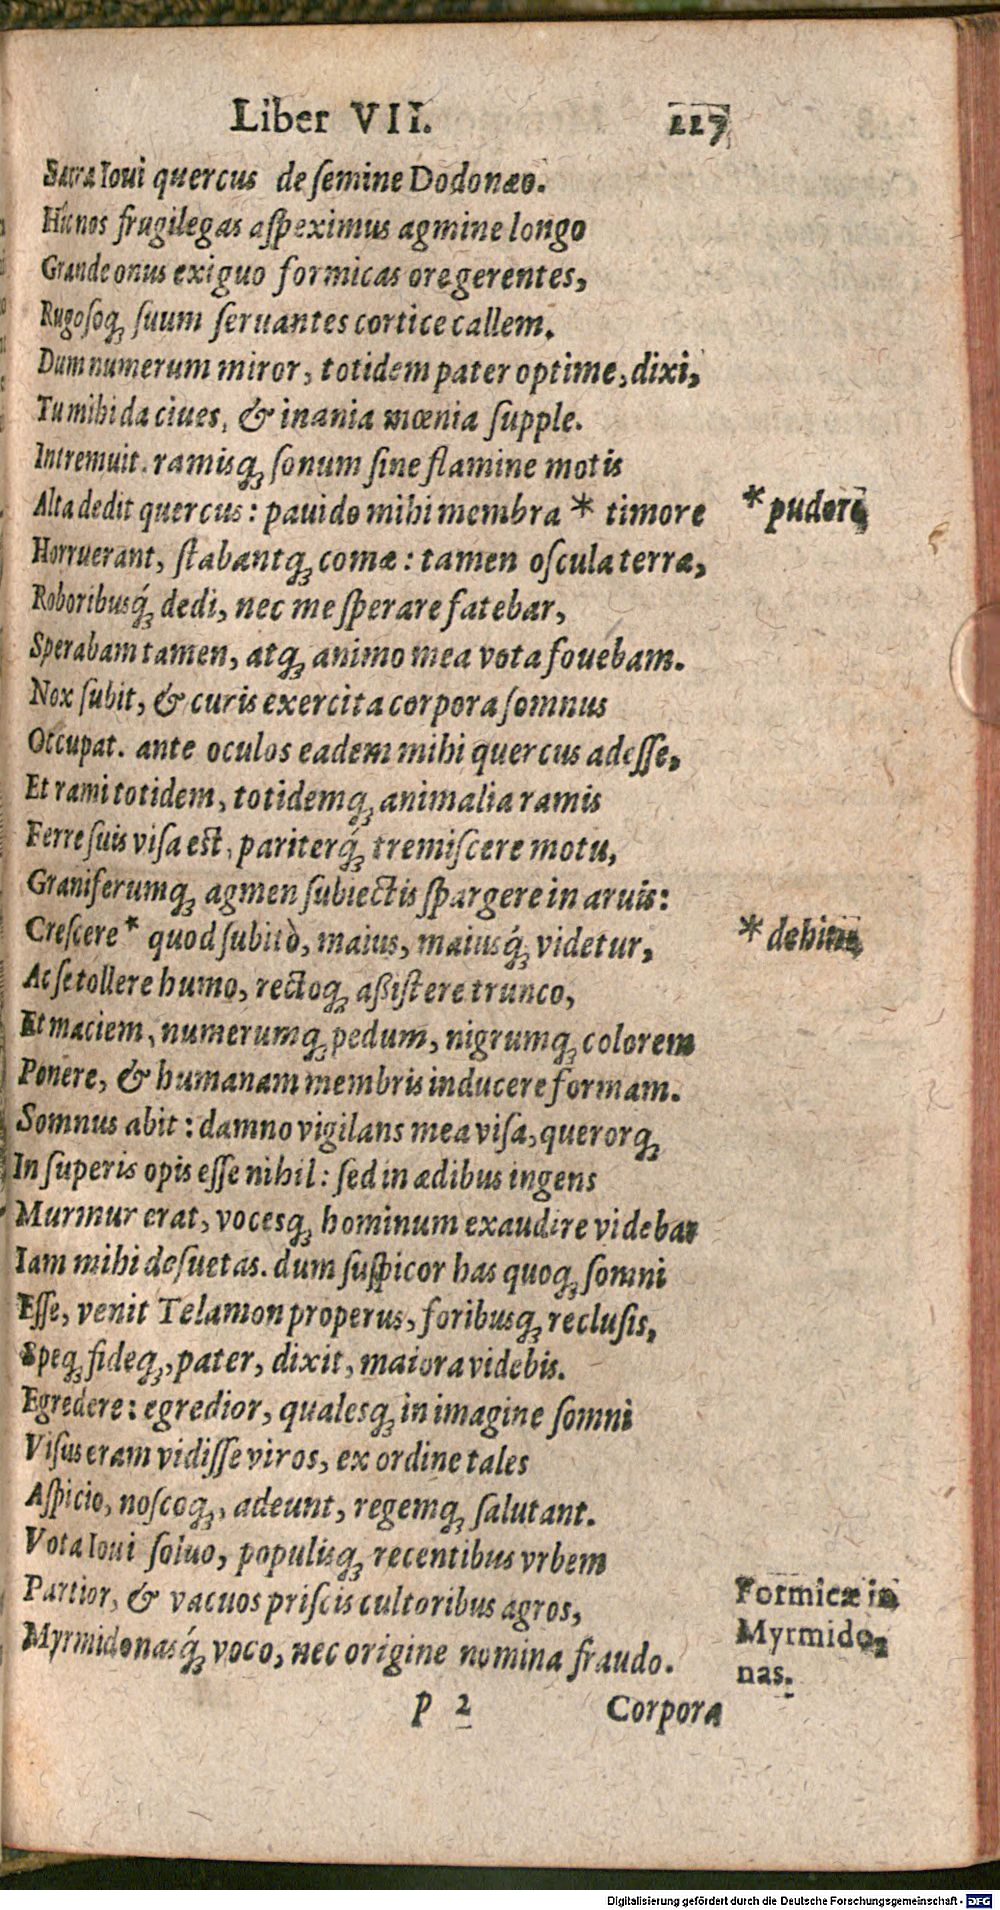 Liber VII. 227
Sacra Ioui quercus de ſemine Dodonæo.
Hic nos frugilegas aſpeximus agmine longo
Grande onus exiguo formicas ore gerentes,
Rugoſoq; ſuum ſeruantes cortice callem.
Dum numerum miror, totidem pater optime, dixi,
Tu mihi da ciues, & inania mœnia ſupple.
Intremuit. ramisq; ſonum ſine flamine motis
Alta dedit quercus: pauido mihi membra * timore
* pudore
Horruerant, ſtabantq; comæ: tamen oſcula terræ,
Roboribusq́; dedi, nec me ſperare fatebar,
Sperabam tamen, atq; animo mea vota fouebam.
Nox ſubit, & curis exercita corpora ſomnus
Occupat. ante oculos eadem mihi quercus adeſſe,
Et rami totidem, totidemq; animalia ramis
Ferre ſuis viſa eſt, pariterq́; tremiſcere motu,
Graniferumq; agmen ſubiectis ſpargere in aruis:
Creſcere * quod ſubitò, maius, maiusq́; videtur,
* dehinc
Ac ſe tollere humo, rectoq; aßiſtere trunco,
Et maciem, numerumq; pedum, nigrumq; colorem
Ponere, & humanam membris inducere formam.
Somnus abit: damno vigilans mea viſa, querorq;
In ſuperis opis eſſe nihil: ſed in ædibus ingens
Murmur erat, vocesq; hominum exaudire videbar
Iam mihi deſuetas. dum ſuſpicor has quoq; ſomni
Eſſe, venit Telamon properus, foribusq; recluſis,
Speq; fideq;, pater, dixit, maiora videbis.
Egredere: egredior, qualesq; in imagine ſomni
Viſus eram vidiſſe viros, ex ordine tales
Aſpicio, noſcoq;, adeunt, regemq; ſalutant.
Vota Ioui ſoluo, populisq; recentibus vrbem
Partior, & vacuos priſcis cultoribus agros,
Myrmidonasq́; voco, nec origine nomina fraudo.
Formicæ in
Myrmido-
nas.
p 2 Corpora
Digitalisierung gefördert durch die Deutsche Forschungsgemeinschaft - DFG